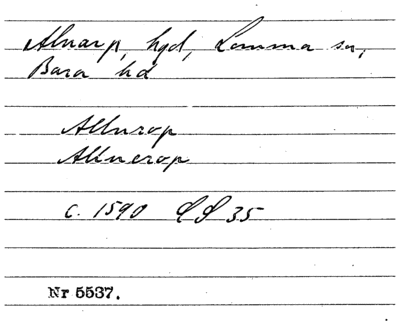 Alnarp, hgd, Lomma sn,
Bara hd
Allnrop
Allnerop
c. 1590 35
Nr 5537.